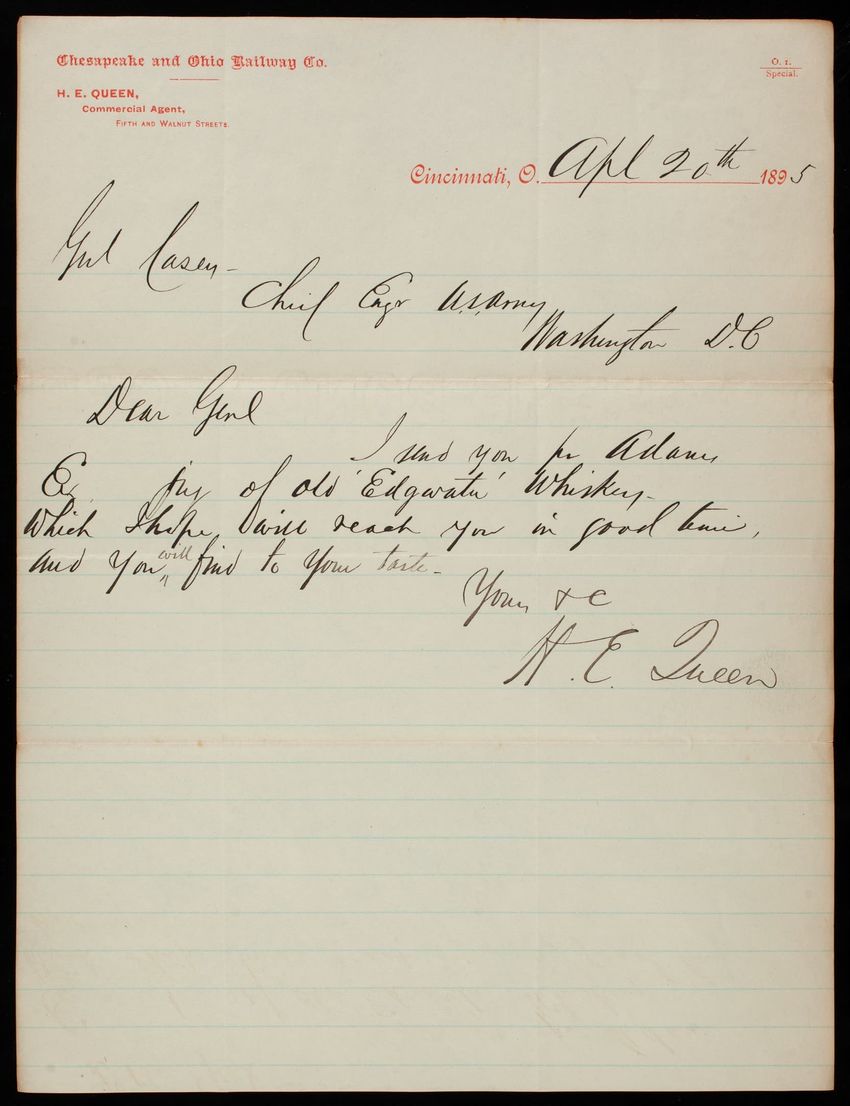 Chesapeake and Ohio Railway Co.
O. 1.
Special.
H. E. QUEEN,
Commercial Agent,
FIFTH AND WALNUT STREETS.
Cincinnati, O. Apl 20th 1895
Genl Casey -
Chief Engr U.S. Army
Washington D.C
Dear Genl
I send you pr Adams
Ex jug of old 'Edgwater' Whiskey -
which I hope will reach you in good time,
and you will find to your taste -
Yours &c
H. E. Queen